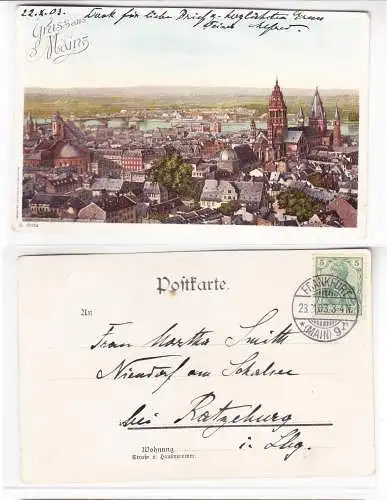 22.X.03. Dank für liebe Brief u. herzlichsten Gruss
Deines Alfred.
Gruss aus
Mainz
Postkarte.
An
Frau Martha Smith
Niendorf am Schalsee
bei Ratzeburg
i. Lbg.
Wohnung
Strasse u. Hausnummer
5 5
FRANKFURT
23. 03. 3-4 N.
* (MAIN) 9 *